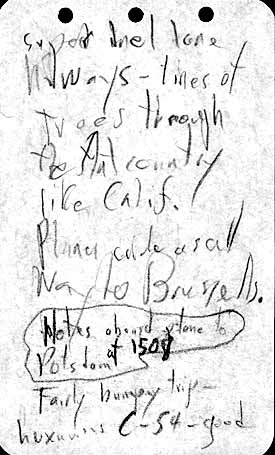 super duel lane
hiways - lines of
trees through
the flat country
like Calif.
Planes as all
way to Brussells.
Notes aboard plane to
Potsdam at 1508
Fairly bumpy trip -
C-54 - good